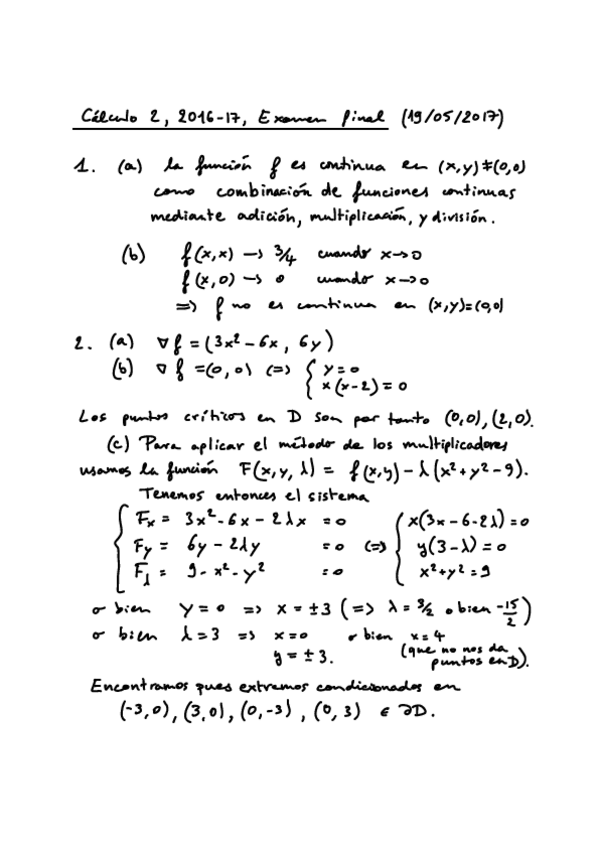 Cálculo 2, 2016-17, Examen final (19/05/2017)
1. (a) la función f es continua en (x,y)≠(0,0)
como combinación de funciones continuas
mediante adición, multiplicación, y división.
(b) f(x,x) → 3/4 cuando x→0
f(x,0) → 0 cuando x→0
⇒ f no es continua en (x,y)=(0,0)
2. (a) ∇f = (3x²-6x, 6y)
(b) ∇f = (0,0) ⇔ { y=0
x(x-2)=0
Los puntos críticos en D son por tanto (0,0), (2,0).
(c) Para aplicar el método de los multiplicadores
usamos la función F(x,y,λ) = f(x,y) - λ(x²+y²-9).
Tenemos entonces el sistema
{ Fx = 3x²-6x-2λx = 0 { x(3x-6-2λ)=0
Fy = 6y-2λy = 0 ⇔ y(3-λ)=0
Fλ = 9-x²-y² = 0 x²+y²=9
o bien y=0 ⇒ x=±3 (⇒ λ=3/2 o bien -15/2)
o bien λ=3 ⇒ x=0 o bien x=4
y=±3. (que no nos da
puntos en D).
Encontramos pues extremos condicionados en
(-3,0), (3,0), (0,-3), (0,3) ∈ ∂D.